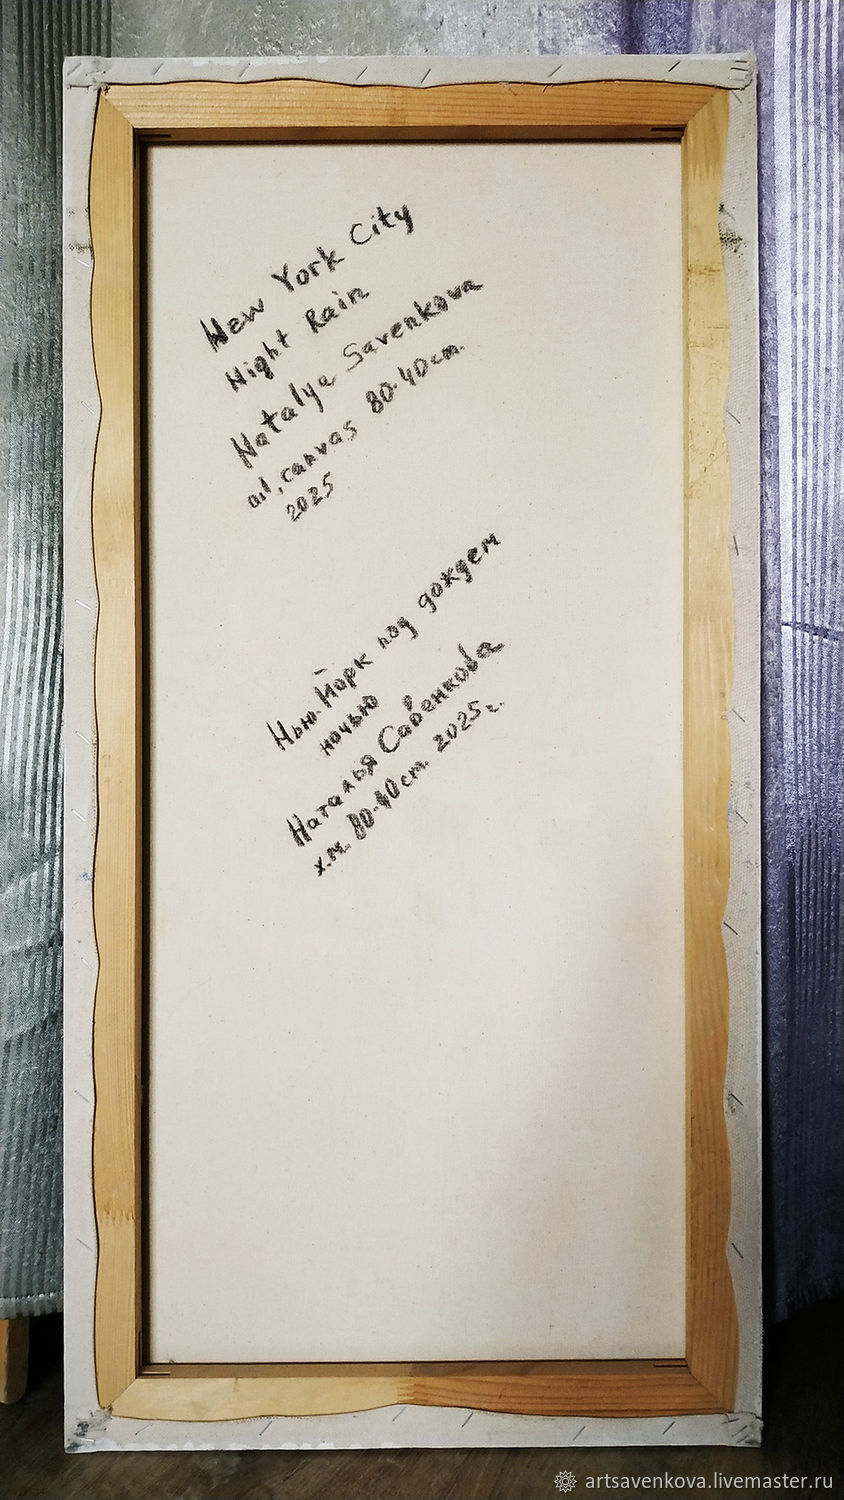 New York City
Night Rain
Natalya Savenkova
oil, canvas 80·40cm.
2025
Нью-Йорк под дождем
ночью
Наталья Савенкова
х.м. 80·40см. 2025г.
artsavenkova.livemaster.ru